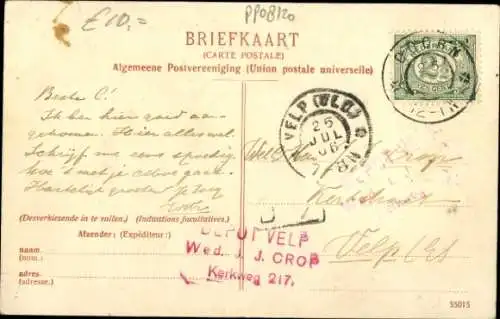 £ 10,=
PPOB120
BRIEFKAART
(CARTE POSTALE)
Algemeene Postvereeniging (Union postale universelle)
DOORN
12-1N
VELP (GLD)
25
JUL
06
Beste C!
Ik ben hier goed aan-
gekomen. Hier alles wel.
Schrijf me eens spoedig
hoe 't met je gaat.
Hartelijke groeten
Crop
Kerkweg
Velp
(Desverkiesende in te vullen). (Indications facultatives).
Afzender: (Expéditeur:)
naam
(nom.)
adres
(adresse.)
DEPOT VELP
Wed. J. J. CROP
Kerkweg 217.
55015